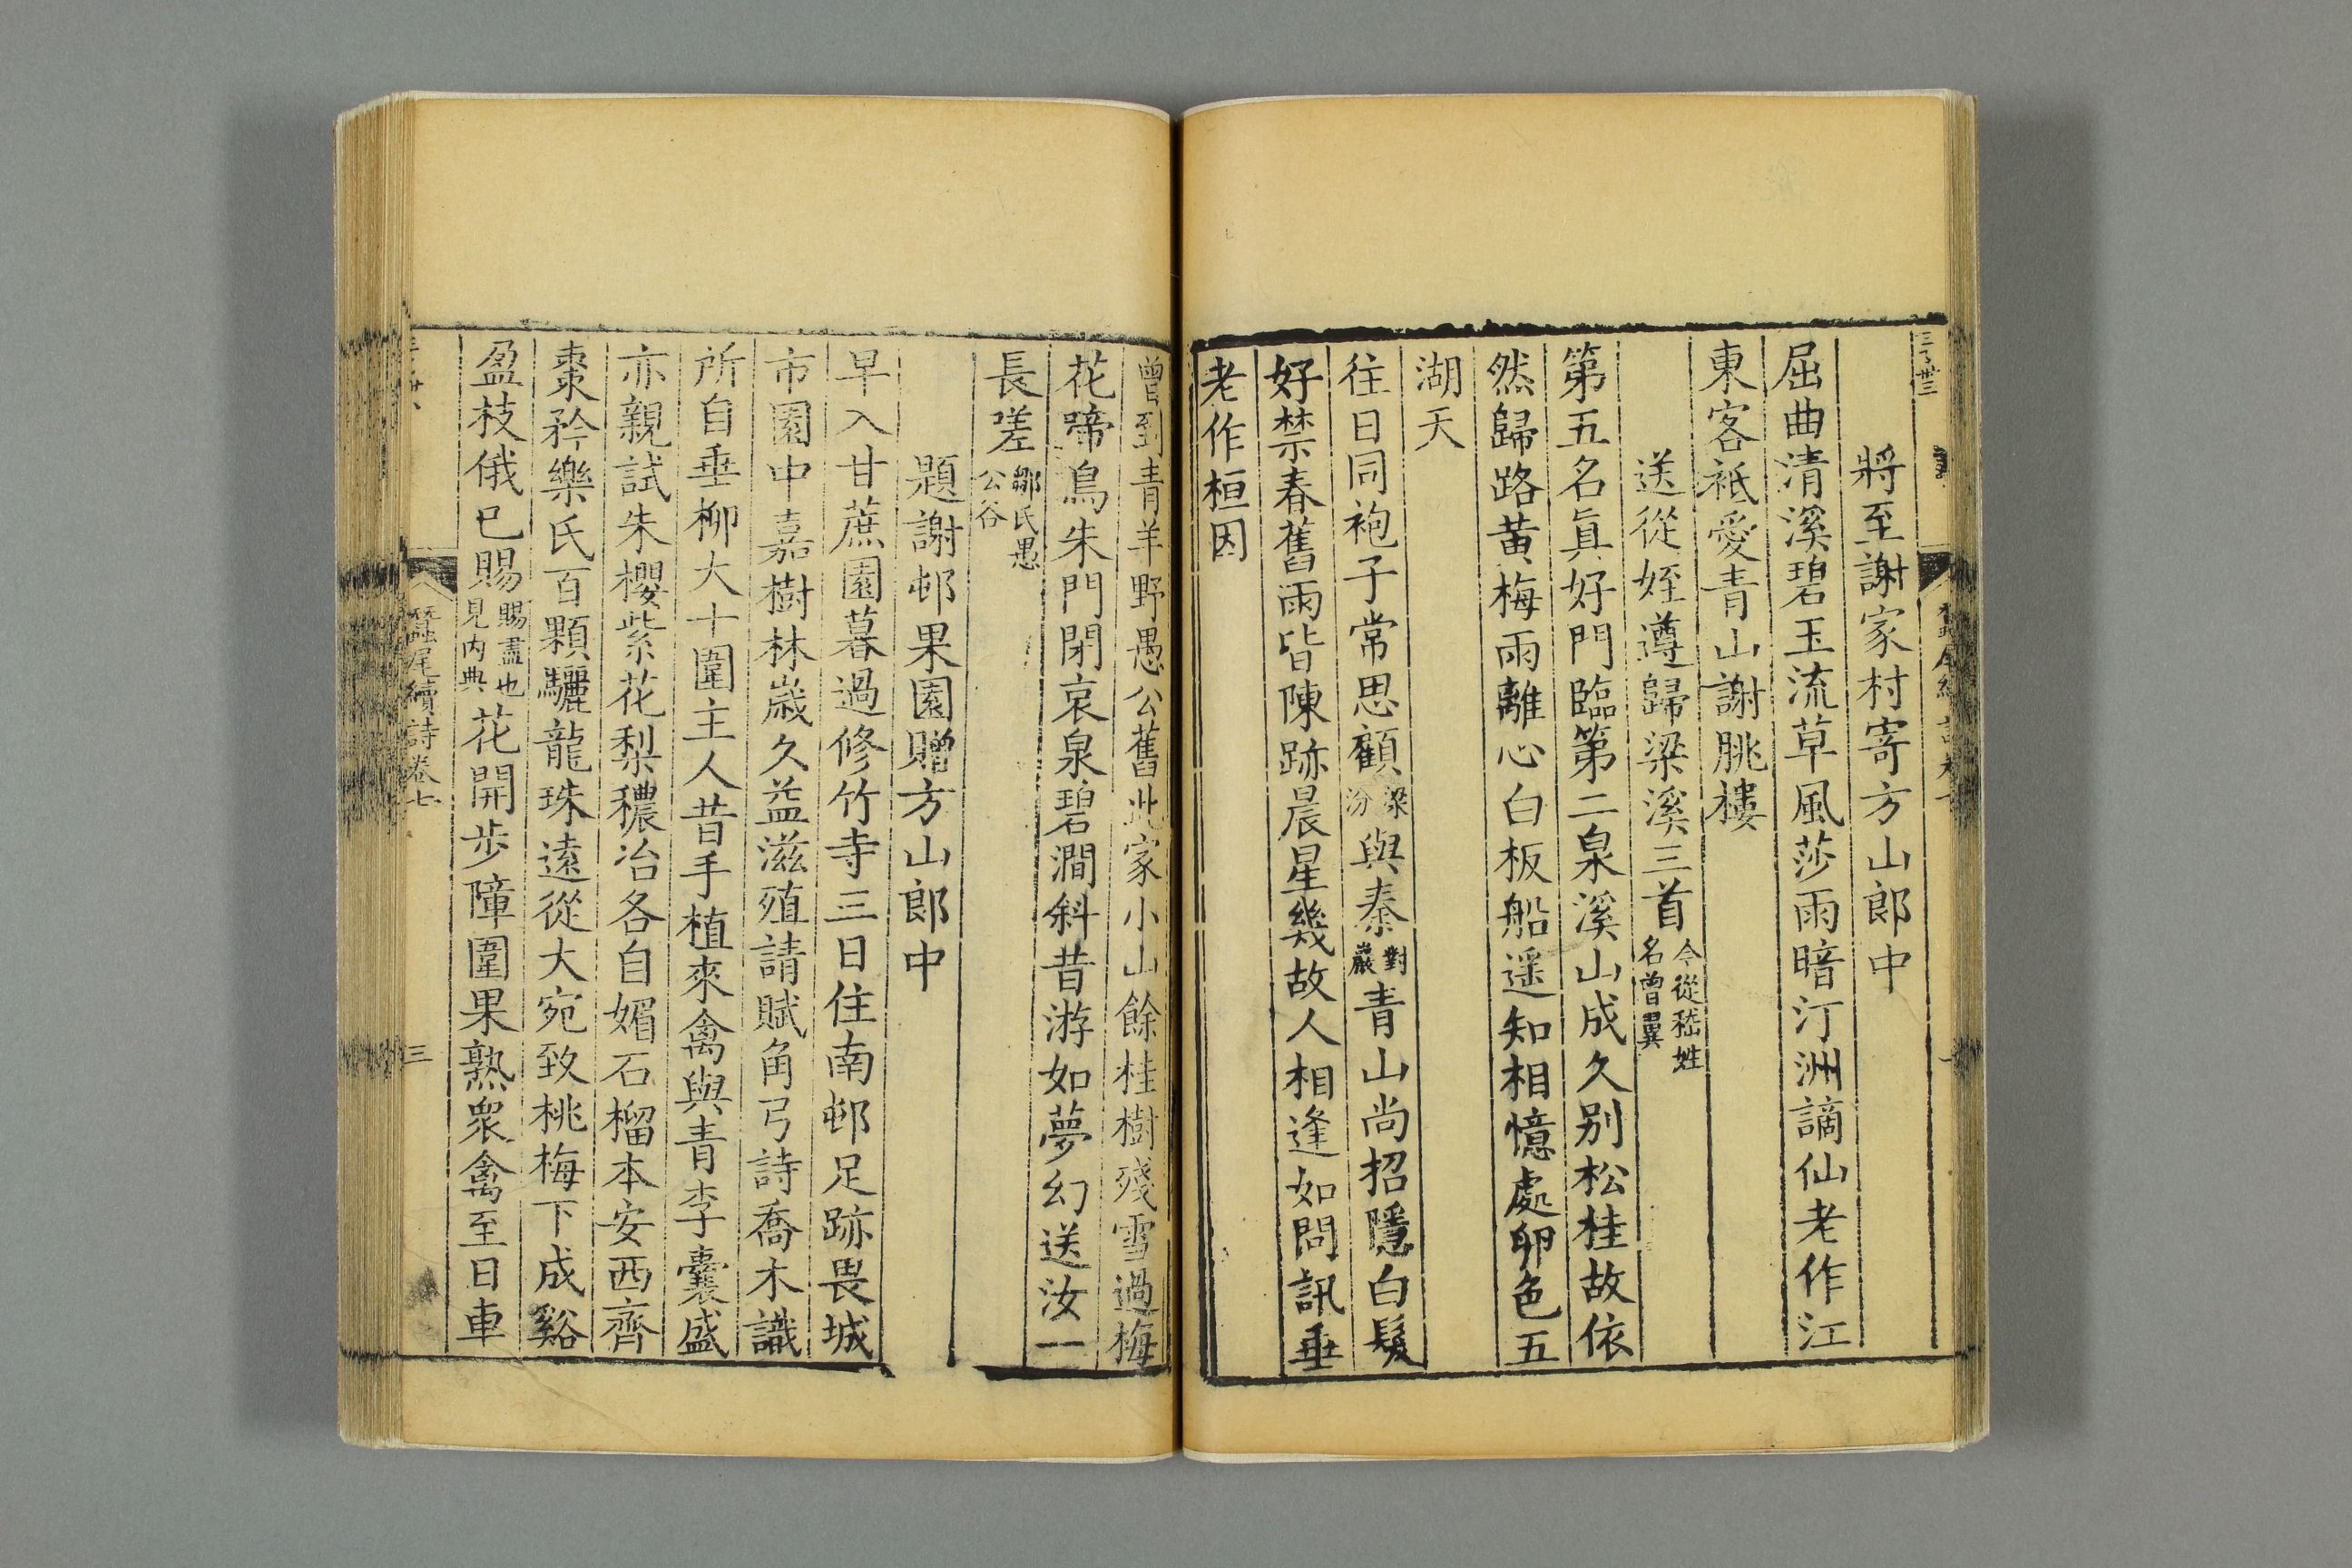 將至謝家村寄方山郎中
屈曲清溪碧玉流草風莎雨暗汀洲謫仙老作江
東客袛愛青山謝朓樓
送從姪遵歸梁溪三首今從嵇姓名曾翼
第五名眞好門臨第二泉溪山成久别松桂故依
然歸路黄梅雨離心白板船遥知相憶處卵色五
湖天
往日同袍子常思顧梁汾與秦對巖青山尚招隱白髮
好禁春舊雨皆陳跡晨星幾故人相逢如問訊垂
老作桓因
曾到青羊野愚公舊此家小山餘桂樹殘雪過梅
花啼鳥朱門閉哀泉碧澗斜昔游如夢幻送汝一
長嗟鄒氏愚公谷
題謝邨果園贈方山郎中
早入甘蔗園暮過修竹寺三日住南邨足跡畏城
市園中嘉樹林歲久益滋殖請賦角弓詩喬木識
所自垂柳大十圍主人昔手植來禽與青李囊盛
亦親試朱櫻紫花梨穠冶各自媚石榴本安西齊
棗矜樂氏百顆驪龍珠遠從大宛致桃梅下成谿
盈枝俄已賜賜盡也見内典花開步障圍果熟衆禽至日車
蠶尾續詩卷七
三